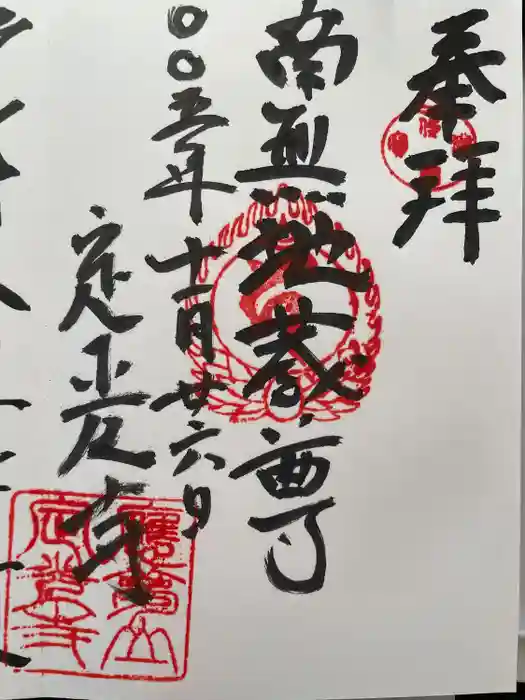 奉拝
南無地蔵尊
〇〇五年十一月廿六日
定光寺
應夢山
定光寺